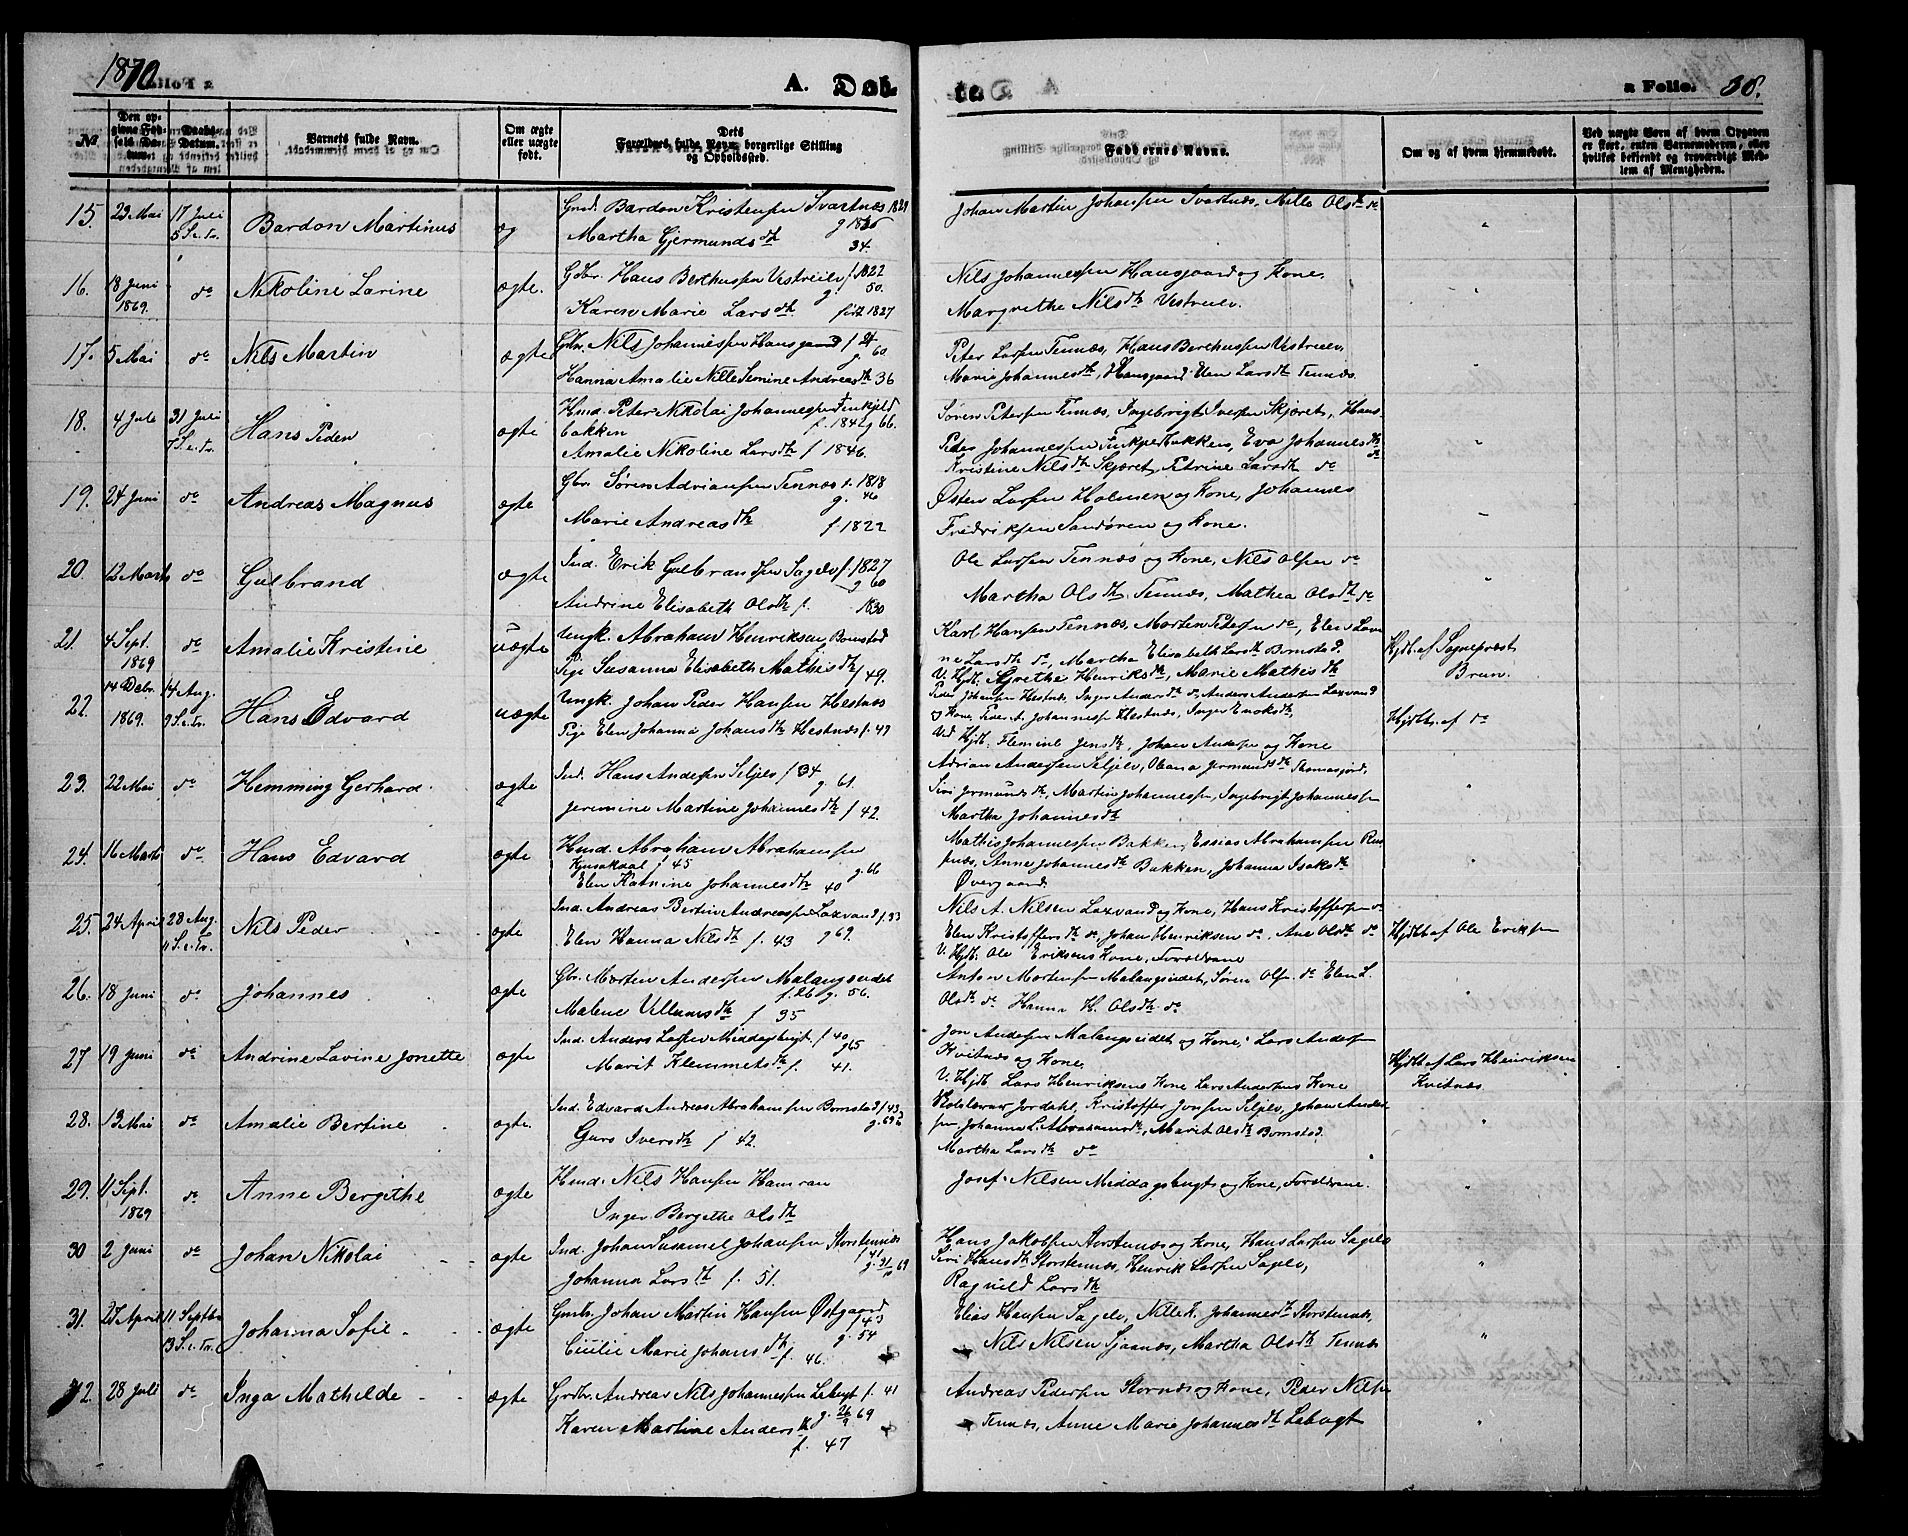 1870 A. Døb- te. a Folio. 38.
No. Den op-givne Fød-sels Da-tum. Daabs-Datum. Barnets fulde Navn. Om ægte eller uægte født. Dets Forældres fulde Navn, borgerlige Stilling og Opholdssted. Faddernes Navne. Om og af hvem hjemmedøbt. Ved uægte Børn af hvem Opgaven er skeet, enten Barnemoderen, eller hvilket bekjendt og troværdigt Med-lem af Menigheden.
15. 23 Mai 17 Juli 5 S. e. Tr. Bardon Martinus æg Gmd. Bardon Kristensen Svartnæs 1829
Martha Gjermundsdtr 34.
Johan Martin Johansen Svartnæs, Nille Olsdtr do
16. 18 Juni 1869. do Nikoline Larine ægte. Gbr. Hans Berthusen Vestreelv f 1822
g. 50.
Karen Marie Larsdtr. født 1827
Nils Johannessen Hansgaard og Kone,
Margrethe Nilsdtr Vestreelv.
17. 5 Mai do Nils Martin ægte Gbr. Nils Johannessen Hansgaard f 24
g. 60
Hanna Amalie Nille Semine Andreasdtr 36
Peter Larsen Tennæs, Hans Berthusen Vestreelv,
Marie Johannesdtr, Hansgaard. Elen Larsdtr Tennæs.
18. 4 Juli 31 Juli 7 S. e. Tr. Hans Peder ægte Hmd. Peter Nikolai Johannessen Finkjeld
bakken f. 1842 g 66.
Amalie Nikoline Larsdtr f 1846.
Søren Petersen Tennæs, Ingebrigt Iversen Skjæret, Hans
Peder Johannessen Finkjeldbakken, Eva Johannesdtr do
Kristine Nilsdtr Skjæret, Petrine Larsdtr do
19. 24 Juni do Andreas Magnus ægte Gbr. Søren Adriansen Tennæs f. 1818
g. 46
Marie Andreasdtr f 1822
Østen Larsen Holmen og Kone, Johannes
Fredriksen Sandøren og Kone.
20. 12 Marts do Gulbrand ægte Ind. Erik Gulbrandsen Sagelv f. 1827
g 60
Andrine Elisabeth Olsdtr f. 1830
Ole Larsen Tennæs og Kone, Nils Olsen do
Martha Olsdtr Tennæs, Mathea Olsdtr do
21. 4 Sept. 1869 do Amalie Kristine uægte Ungk. Abraham Henriksen Bomstad
Pige Susanna Elisabeth Mathisdtr f 49.
Karl Hansen Tennæs, Morten Petersen do, Elen Lavi
ne Larsdtr do, Martha Elisabeth Larsdtr Bomstad.
V. Hjd. Grethe Henriksdtr, Marie Mathisdtr
Hjdt. af Sognepræst
Brun.
22. 14 Debr. 1869. 14 Aug. 9 S. e. Tr. Hans Edvard uægte Ungk. Johan Peder Hansen Hestnæs
Pige Elen Johanna Johansdtr Hestnæs f. 49
Peder Johansen Hestnæs, Inger Andersdtr do, Anders Andersen Laxvand
og Kone, Peder A. Johannessen Hestnæs, Inger Enoksdtr,
Ved Hjdb. Flemine Jensdtr, Johan Andersen og Kone
Hjdbt. af do
23. 22 Mai do Hemming Gerhard. ægte Ind. Hans Andersen Seljelv f 34
g. 61.
Jermine Martine Johannesdtr f 42.
Adrian Andersen Seljelv, Oleana Jermundsdtr Thomasjord,
Siri Jermundsdtr, Martin Johannessen, Ingebrigt Johannessen
Martha Johannesdtr
24. 16 Marts do Hans Edvard ægte Hmd. Abraham Abrahamsen
f 45 g. 66
Elen Katrine Johannesdtr 40
Mathis Johannessen Bakken, Essias Abrahamsen Rus
næs, Anne Johannesdtr Bakken, Johanna Isaksdtr
Øvergaard.
25. 24 April 28 Aug. 11 S. e. Tr. Nils Peder ægte Ind. Andreas Bertin Andreassen Laxvand f. 33
Elen Hanna Nilsdtr f. 43 g 69.
Nils A. Nilsen Laxvand og Kone, Hans Kristoffersen do
Elen Kristoffersdtr do, Johan Henriksen do. Ane Olsdtr do
V. Hjdb. Ole Eriksens Kone, Forældrene
Hjdbt af Ole Eriksen
26. 18 Juni do Johannes ægte Gbr. Morten Andersen Malangseidet
f. 26 g. 56.
Malene Villumsdtr f 35
Anton Mortensen Malangseidet, Søren Olsen do Elen L.
Olsdtr do Hanna H. Olsdtr do
27 19 Juni do Andrine Lavine Jonette ægte Ind. Anders Larsen Middagsbugt f. 40
g 65
Marit Klemmetsdtr f. 41.
Jon Andersen Malangseidet og Kone, Lars Andersen
Kvitnæs og Kone,
V. Hjdb Lars Henriksens Kone Lars Andersens Kone
Hjdbt af Lars Henriksen
Kvitnæs
28. 13 Mai do Amalie Bertine ægte. Ind. Edvard Andreas Abrahamsen Bomstad f 43
g. 69
Guro Iversdtr f 42.
Jordahl, Kristoffer Jonsen Seljelv, Johan Ander
sen. Johanna L. Abrahamsdtr, Marit Olsdtr Bomstad.
Martha Larsdtr do
29. 11 Sept. 1869 do Anne Bergithe ægte Hmd. Nils Hansen Hamran
Inger Bergithe Olsdtr
Josef Nilsen Middagsbugt og Kone, Forældrene.
30 2 Juni do Johan Nikolai ægte Ind. Johan Susamel Johansen Storstennæs
f 41
Johanna Larsdtr f. 51. g. 31/10 69
Hans Jakobsen Storstennæs og Kone, Hans Larsen Sagelv
Siri Hansdtr Storstennæs, Henrik Larsen Sagelv,
Ragnild Larsdtr
31. 27 April 11 Septbr 13 S. e. Tr. Johanna Sofie ægte Gmbr. Johan Martin Hansen Østgaard
f 43
g. 54
Cecilie Marie Johansdtr f. 46.
Elias Hansen Sagelv, Nille K. Johannesdtr Storstennæs,
Nils Nilsen Sjaanæs, Martha Olsdtr Tennæs
32. 28 Juli do Inga Mathilde ægte Grdbr. Andreas Nils Johannessen Lebugt f. 41
g. 26/9 69
Karen Martine Andersdtr
f. 47
Andreas Pedersen Stornæs og Kone, Peder Nilsen
Tennæs, Anne Marie Johannesdtr Lebugt